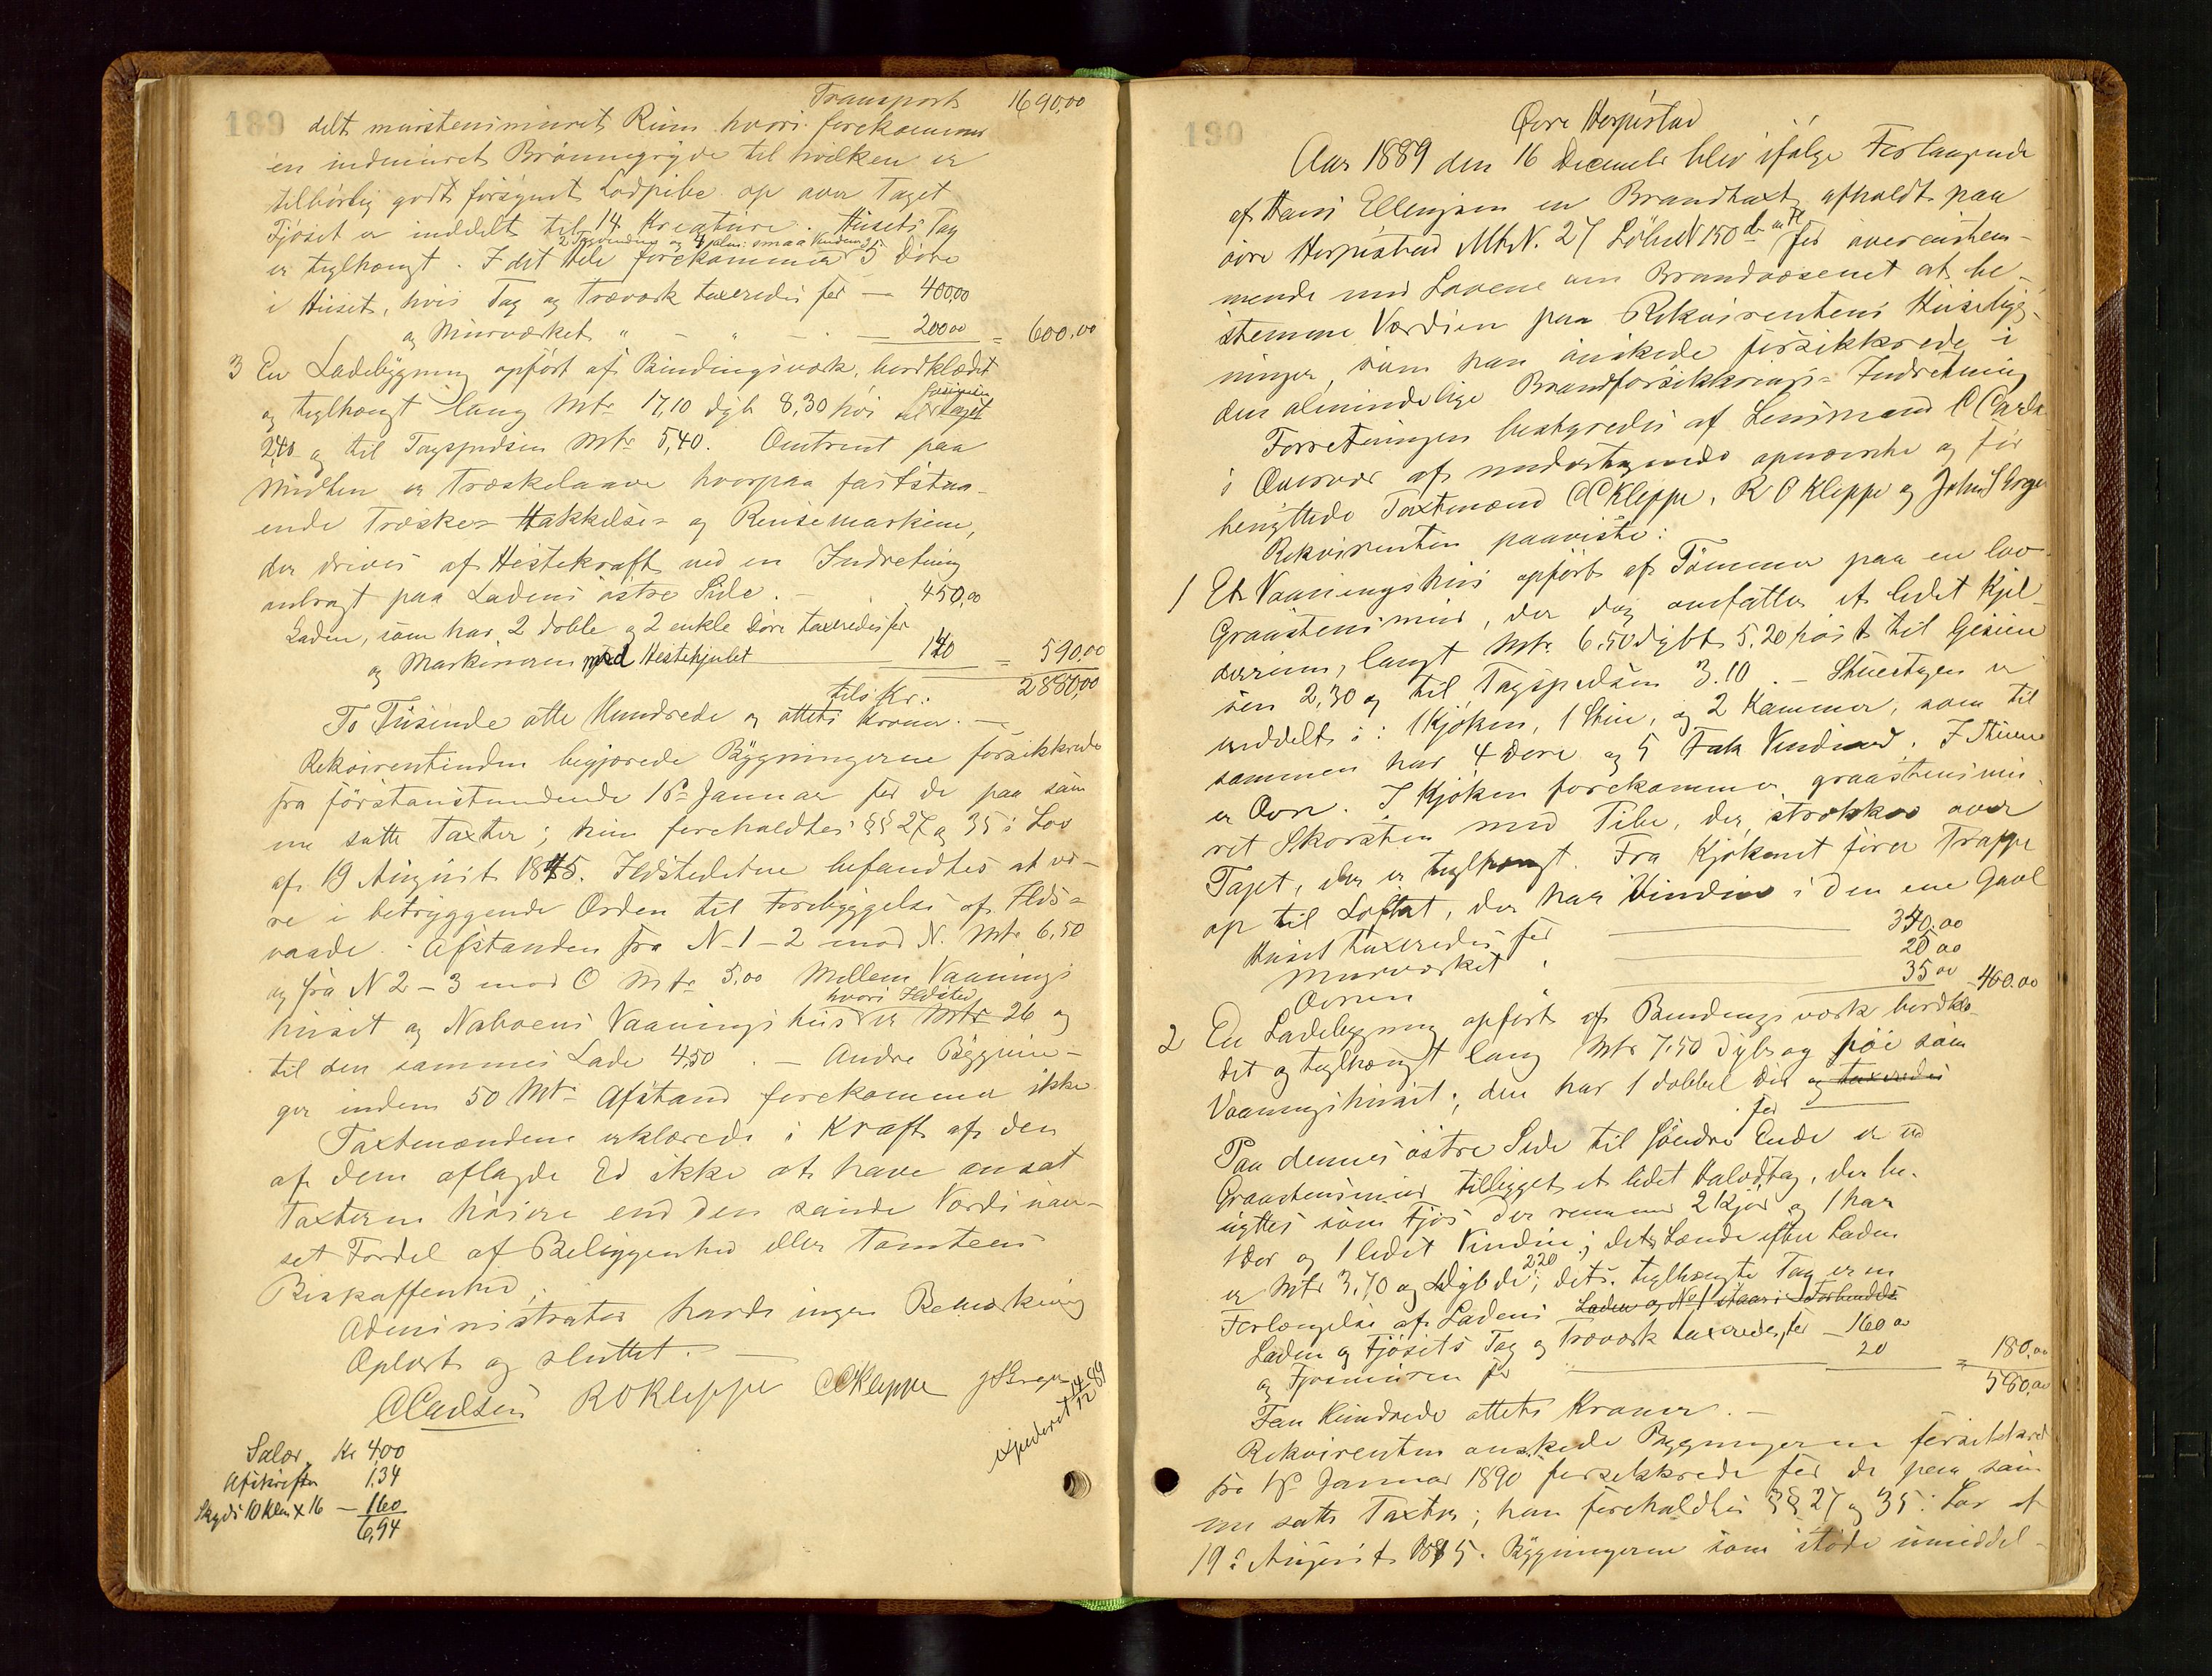 189
Transport 1690,00
delt murstensmuret Rum hvori forekommer
en indmuret Bryggegryde til hvilken er
tilbørlig godt forsynet Lodpibe op over Taget
Fjøset er inddelt til 14 Kreature. Husets Tag
2 og 4 smaa Vinduer
er teglhængt. I det Hele forekommer 5 Døre
i Huset, hvis Tag og Træværk taxeredes for — 400,00
og Murværket " - " - — 200,00 = 600,00
3 En Ladebygning opført af Bindingsværk, bordklædt
Gesimsen
og teglhængt lang Mtr 17,10 dyb 8,30 høi til Taget
2,40 og til Tagspidsen Mtr 5,40. Omtrent paa
Midten er Træskelaave hvorpaa faststaa-
ende Træske= Hakkelse= og Rensemaskine,
der drives af Hestekraft ved en Indretning
anbragt paa Ladens østre Side. - 450,00
Laden, som har 2 doble og 2 enkle Døre taxeredes for
og Maskineren med Hestehjulet — 140 = 590,00
tils Kr. 2880,00
To Tusinde otte Hundrede og otteti Kroner. —
Rekvirentinden begjærede Bygningerne forsikkrede
fra førstanstundende 1ste Januar for de paa sam
me satte Taxter; hun foreholdtes §§ 27 og 35 i Lov
af 19 August 1845. Ildstederne befandtes at væ-
re i betryggende Orden til Forebyggelse af Ilds=
vaade. - Afstanden fra N-1-2 mod N. Mtr 6,50
og fra N 2-3 mod O Mtr 5,00 Mellem Vaanings
hvori Ildsted
huset og Naboens Vaaningshus er Mtr 26 og
til den sammes Lade 4,50. - Andre Bygnin-
ger inden 50 Mtr Afstand forekommer ikke
Taxtmændene erklærede i Kraft af den
af dem aflagde Ed ikke at have ansat
Taxterne høiere end den sande Værdi uan-
set Fordel af Beliggenhed eller Tomtens
Beskaffenhed.
Administrator havde ingen Bemærkning
Oplæst og sluttet. —
CCarlsen R O Kleppe CCKleppe
expederet 14/12 89
Salær Kr 4,00
Afskriften 1,34
Skyds 10 Klm x 16 — 1,60
6,94
190
Øvre Herpestad
Aar 1889 den 16 Decembr blev ifølge Forlangende
af Hans Ellingsen en Brandtaxt afholdt paa
øvre Herpestad MtrN. 27 LøbeN 150 for overenstem-
mende med Lovene om Brandvæsenet at be-
stemme Værdien paa Rekvirentens Husebyg-
ninger, som han ønskede forsikkrede i
den almindelige Brandforsikkrings= Indretning
Forretningen bestyredes af Lensmand C Carlsen
i Overvær af undertegnede opnævnte og før
benyttede Taxtmænd CC Kleppe, R O Kleppe og John S
Rekvirenten paaviste:
1 Et Vaaningshus opført af Tømmer paa en lav
Graastensmur, der dog omfatter et lidet Kjel-
derrum, langt Mtr. 6.50 dybt 5.20 høit til Gesim
sen 2,30 og til Tagspidsen 3.10. - Stueetagen er
inddelt i: 1 Kjøken, 1 Stue, og 2 Kammer, som til
sammen har 4 Døre og 5 Fak Vinduer. I Stuen
er Ovn. I Kjøken forekommer graastensmu-
ret Skorsten med Pibe, der strækker over
Taget, der er teglhængt. Fra Kjøkenet fører Trappe
op til Loftet, der har Vindue i den ene Gavl
Huset taxeredes for — 340,00
Murværket " — 25,00
Ovnen — 35,00 - 400.00
2 En Ladebygning opført af Bindingsværk bordklæ-
det og teglhængt lang Mtr 7.50 dyb og høi som
Vaaningshuset; den har 1 dobbel Dør og taxeredes
for —
Paa dennes østre Side til søndre Ende er en
Graastensmur tilbygget et lidet Halvtag, der be-
nyttes som Fjøs der rummer 2 Kjør og 1 har
1 Dør og 1 lidet Vindue; dets Længde efter Laden
er Mtr 3,70 og Dybde 2,20; dets teglhængte Tag er en
Forlængelse af Ladens Laden og No 1 staar i Forbindelse
Laden og Fjøsets Tag og Træværk taxeredes for — 160,00
og Fjøsmuren for — 20 = 180,00
580,00
Fem Hundrede otteti Kroner. -
Rekvirenten ønskede Bygningerne forsikkred
fra 1ste Januar 1890 forsikkrede for de paa sam
me satte Taxter; han foreholdtes §§ 27 og 35 i Lov af
19de August 1845. Bygningerne som støde umiddel-